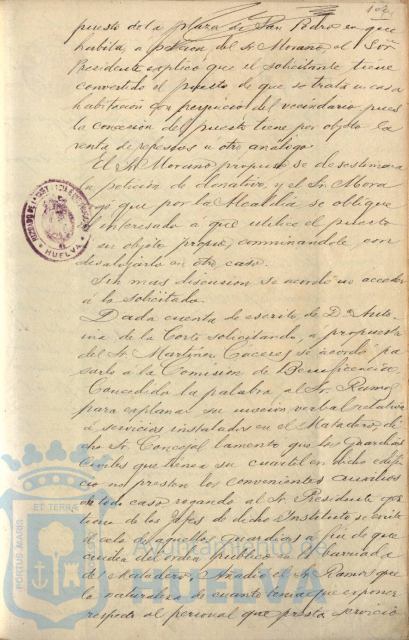 102
puesto de la plaza de San Pedro en que
habita, a petición del Sr Morano, el Señor
Presidente explicó que el solicitante tiene
convertido el puesto de que se trata en casa
habitación con perjuicio del vecindario, pues
la concesión del puesto tiene por objeto la
venta de repesos u otro análogo.
El Sr Morano propuso se desestimara
la petición de donativo, y el Sr. Mora
que por la Alcaldía se obligue
interesado a que utilice el puesto
su objeto propio, conminándole con
desalojarlo en otro caso.
Sin mas discusión se acordó no acceder
a lo solicitado.
Dada cuenta de escrito de Dª Anto
nia de la Corte solicitando, a propuesta
del Sr Martínez Caceres se acordó pa
sarlo a la Comisión de Beneficencia.
Concedida la palabra al Sr. Ramos
para explanar su moción verbal relativa
a servicios instalados en el Matadero, di
cho Sr. Concejal lamentó que los Guardias
Civiles que tienen su cuartel en dicho edifi
cio no presten los convenientes auxilios
caso, rogando al Sr Presidente ges
tione de los Jefes de dicho Instituto se excite
el celo de aquellos Guardias a fin de que
cuiden del orden público en la barriada
del Matadero. Añadió el Sr Ramos que
la naturaleza de cuanto tenía que exponer
respecto al personal que presta servicio
HUELVA
PORTUS MARIS
ET TERRÆ
Ayuntamiento de
HUELVA